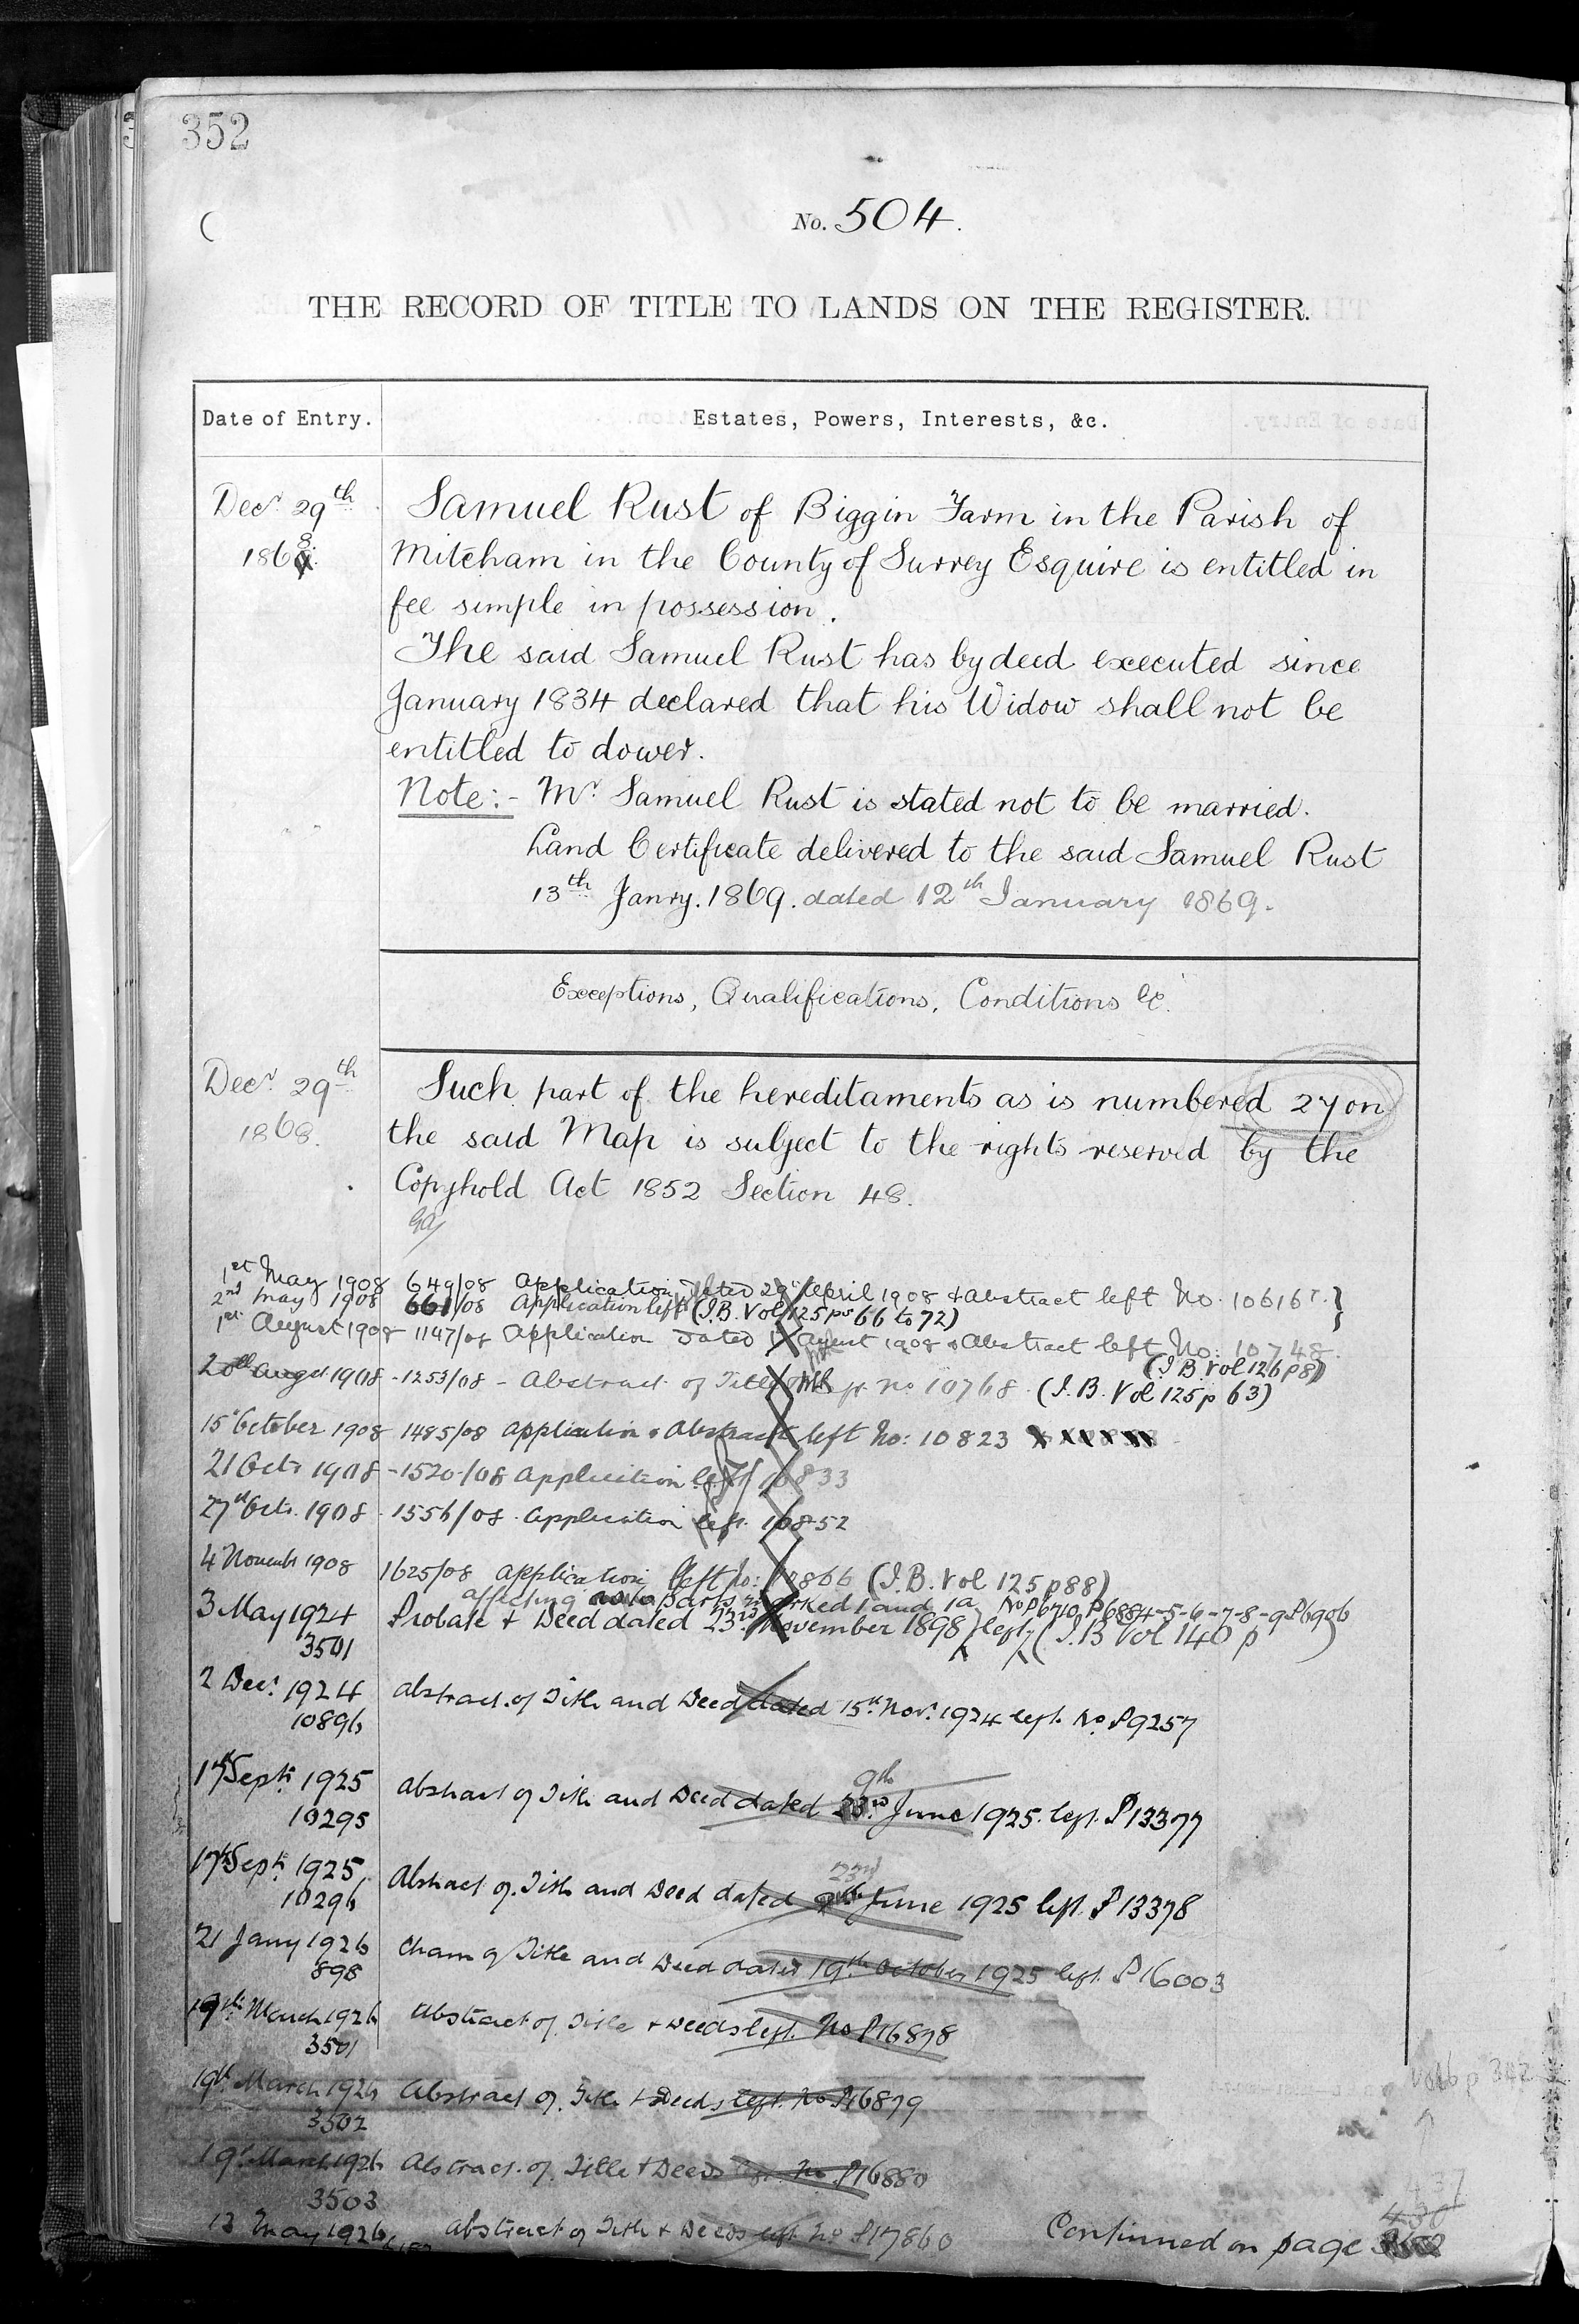 352
No. 504.
THE RECORD OF TITLE TO LANDS ON THE REGISTER.
Date of Entry. Estates, Powers, Interests, &c.
Decr 29th Samuel Rust of Biggin Farm in the Parish of
1868 Mitcham in the County of Surrey Esquire is entitled in
fee simple in possession.
The said Samuel Rust has by deed executed since
January 1834 declared that his Widow shall not be
entitled to dower.
Note:- Mr Samuel Rust is stated not to be married.
Land Certificate delivered to the said Samuel Rust
13th Janry. 1869. dated 12th January 1869.
Exceptions, Qualifications, Conditions &c.
Decr 29th Such part of the hereditaments as is numbered 27 on
1868. the said Map is subject to the rights reserved by the
Copyhold Act 1852 Section 48.
1st May 1908 649/08 Application dated 29th April 1908 & Abstract left No. 10616
2nd May 1908 661/08 Application left (I.B. Vol 125 ps 66 to 72)
1st August 1908 1147/08 Application dated 1 August 1908 & Abstract left No: 10748.
(I.B. Vol 126 p 8)
20th Augst 1908 - 1253/08 - Abstract of Title left no 10768. (I.B. Vol 125 p 63)
15 October 1908 1485/08 Application & Abstract left No: 10823
21 Octr 1908 - 1520/08 Application left 10833
27th Octr. 1908 - 1556/08 Application left. 10852
4 Novembr 1908 1625/08 Application left No: 10866 (I.B. Vol 125 p 88)
affecting parts marked 1 and 1a No P6710, P6884-5-6-7-8-9 P6906
3 May 1924 Probate & Deed dated 23rd November 1898 left (I.B Vol 140 p )
3501
2 Decr 1924 Abstract of Title and Deed dated 15th Novr 1924 left No P9257
10896
9th
17th Septr 1925 Abstract of Title and Deed dated 23rd June 1925 left. P13377
10295
23rd
17th Septr 1925 Abstract of Title and Deed dated 9th June 1925 left. P13378
10296
21 Jany 1926 Chain of Title and Deed dated 19th October 1925 left P16003
898
19th March 1926 Abstract of Title & Deeds left. No P16878
3501
19th March 1926 Abstract of Title & Deeds left. No P16879
3502
19th March 1926 Abstract of Title & Deeds left. No P16880
3503
13 May 1926 Abstract of Title & Deeds left No P17860
Continued on page 430